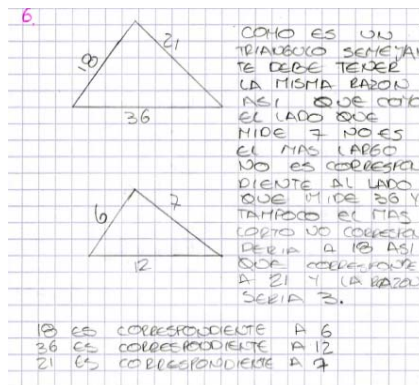 6.
18
21
36
COMO ES UN
TRIANGULO SEMEJAN
TE DEBE TENER
LA MISMA RAZON
ASI QUE COMO
EL LADO QUE
MIDE 7 NO ES
EL MAS LARGO
NO ES CORRESPON
DIENTE AL LADO
QUE MIDE 36 Y
TAMPOCO EL MAS
CORTO NO CORRESPON
DERIA A 18 ASI
QUE CORRESPONDE
A 21 Y LA RAZON
SERIA 3.
6
7
12
18 ES CORRESPONDIENTE A 6
36 ES CORRESPONDIENTE A 12
21 ES CORRESPONDIENTE A 7